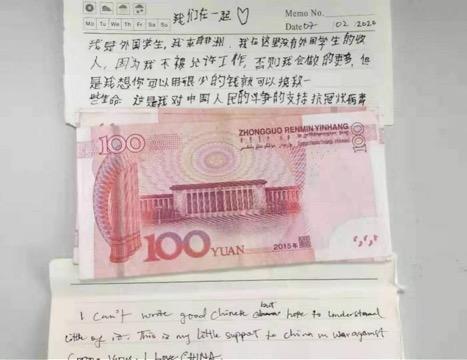 我们在一起♡
Memo No.
Mo Tu We Th Fr Sa Su
Date 07 / 02 / 2020
我是外国学生,我来自非洲.我在这里没有外国学生的收
人,因为我不被允许工作,否则我会做的更多,但
是我想你可以用很少的钱就可以挽救一
些生命 这是我对中国人民的斗争的支持抗冠状病毒
ZHONGGUO RENMIN YINHANG
100
100
100 YUAN
2015年
I can't write good Chinese but hope to understand
little of it. This is my little support to china in war against
Corona Virus. I love CHINA.